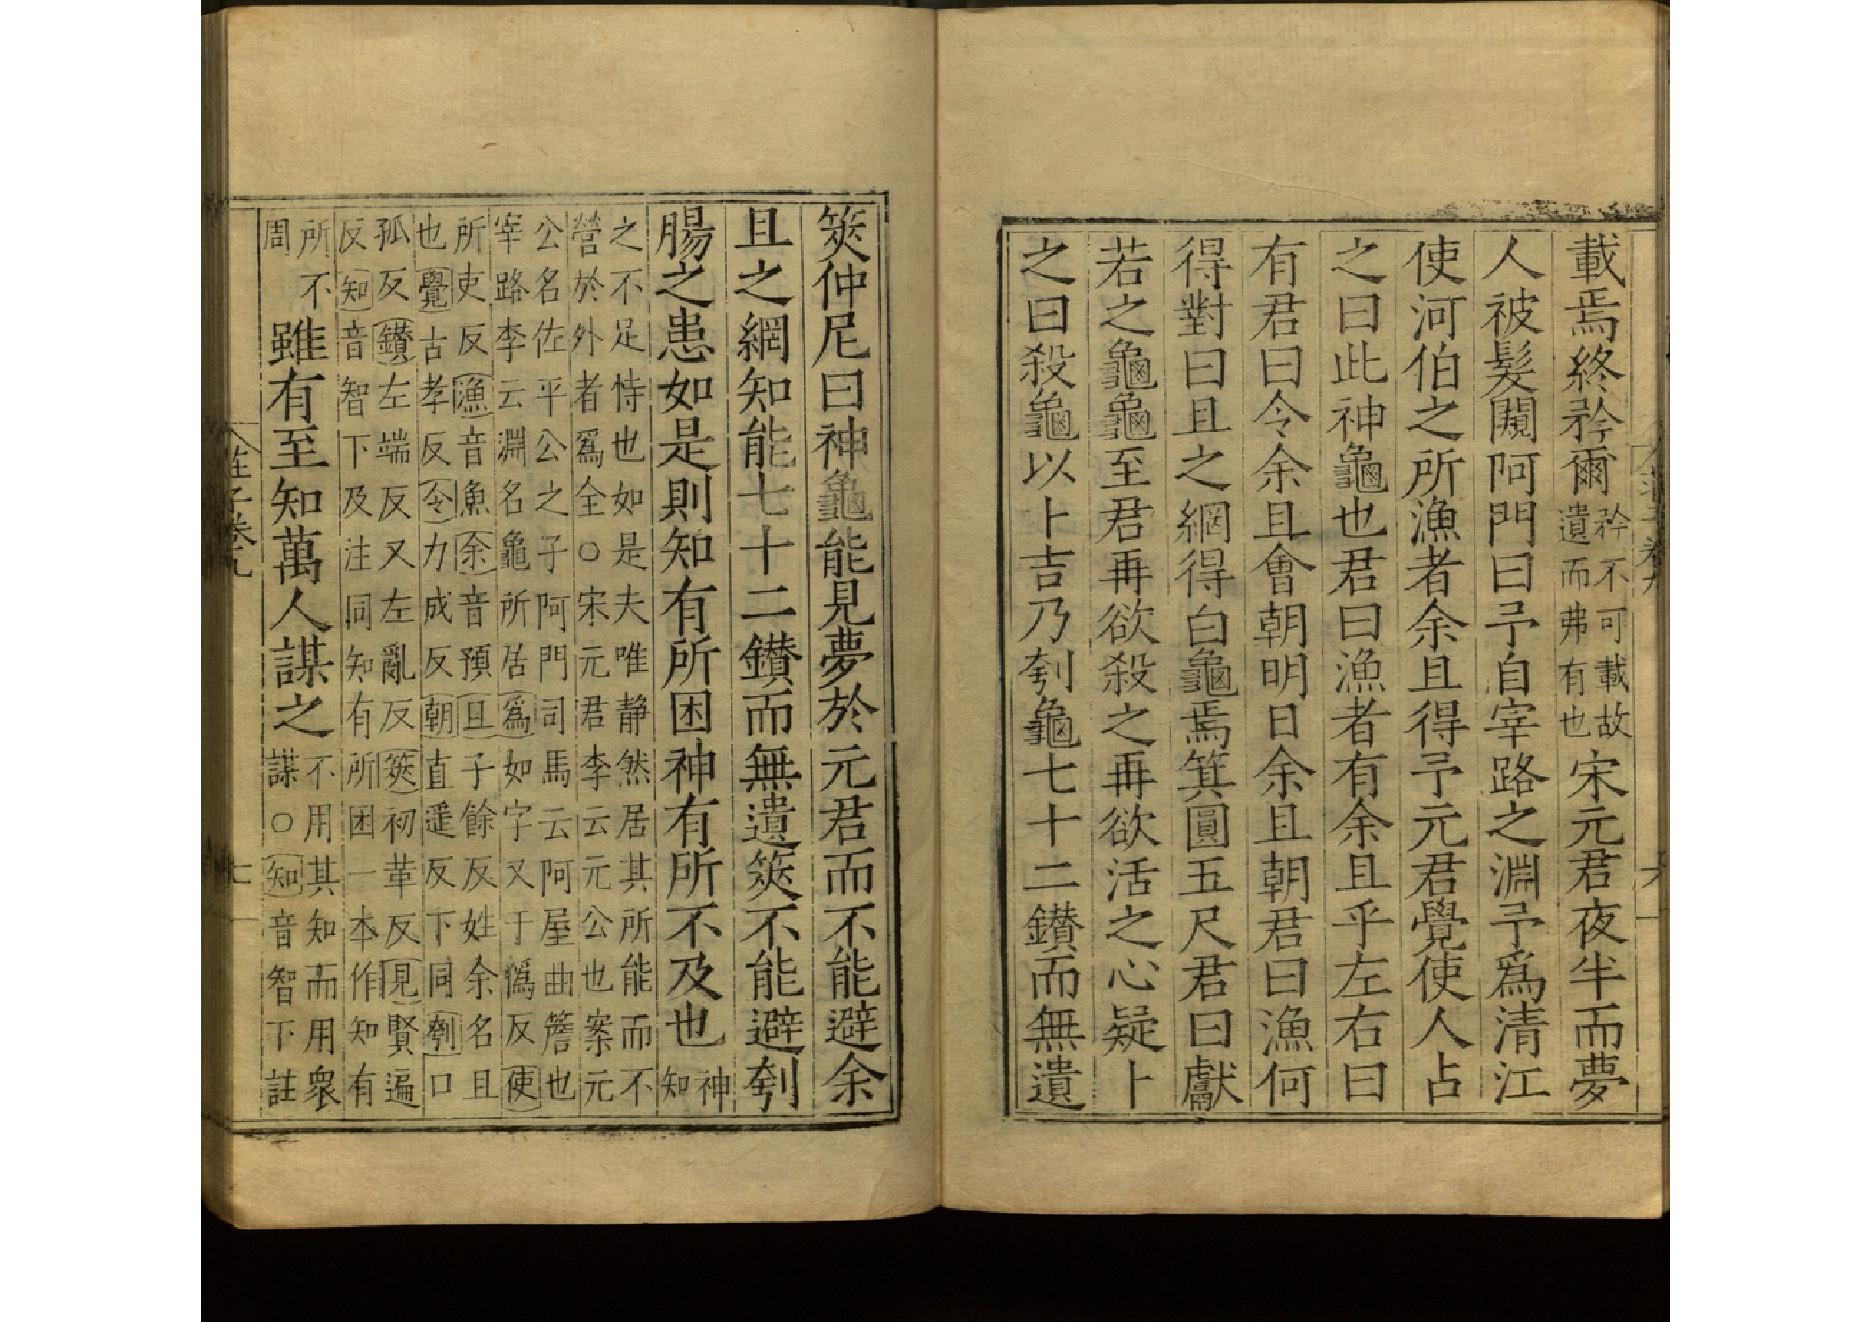 莊子卷九 六
載焉終矜爾矜不可載故
遺而弗有也宋元君夜半而夢
人被髮闚阿門曰予自宰路之淵予爲清江
使河伯之所漁者余且得予元君覺使人占
之曰此神龜也君曰漁者有余且乎左右曰
有君曰令余且會朝明日余且朝君曰漁何
得對曰且之網得白龜焉箕圓五尺君曰獻
若之龜龜至君再欲殺之再欲活之心疑卜
之曰殺龜以卜吉乃刳龜七十二鑽而無遺
筴仲尼曰神龜能見夢於元君而不能避余
且之網知能七十二鑽而無遺筴不能避刳
腸之患如是則知有所困神有所不及也神
知
之不足恃也如是夫唯静然居其所能而不
營於外者爲全○宋元君李云元公也案元
公名佐平公之子阿門司馬云阿屋曲簷也
宰路李云淵名龜所居爲如字又于僞反使
所吏反漁音魚余音預且子餘反姓余名且
也覺古孝反令力成反朝直遥反下同刳口
孤反鑽左端反又左亂反筴初革反見賢遍
反知音智下及注同知有所困一本作知有
所不
周雖有至知萬人謀之不用其知而用衆
謀○知音智下註
莊子卷九 七